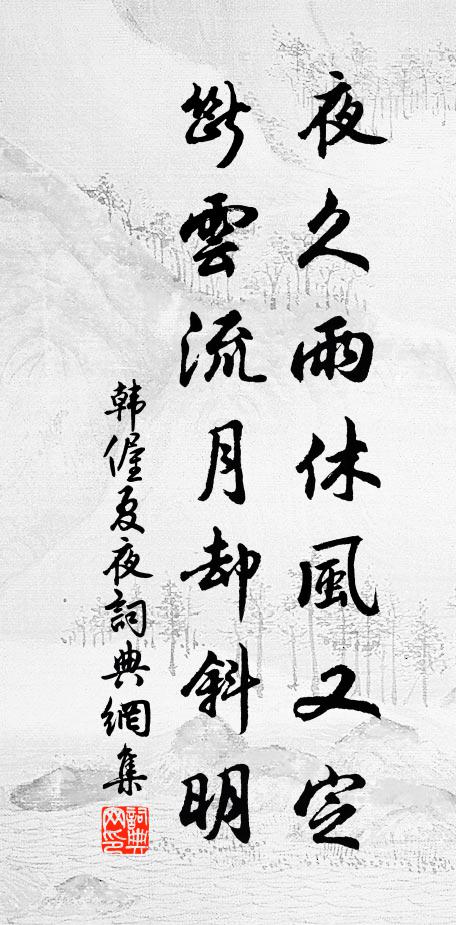 夜久雨休風又定
斷雲流月却斜明
韩偓夏夜詞典網集
詞典网印